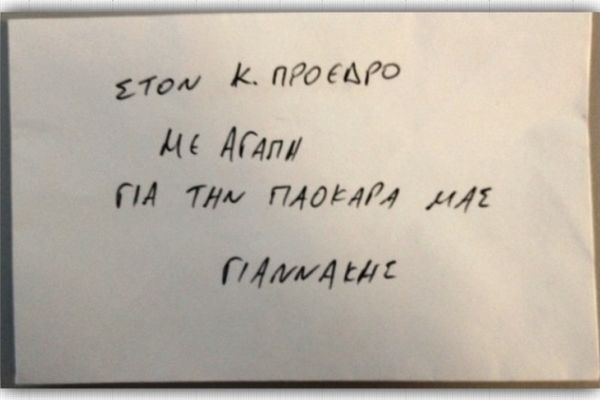 ΣΤΟΝ Κ. ΠΡΟΕΔΡΟ
ΜΕ ΑΓΑΠΗ
ΓΙΑ ΤΗΝ ΠΑΟΚΑΡΑ ΜΑΣ
ΓΙΑΝΝΑΚΗΣ